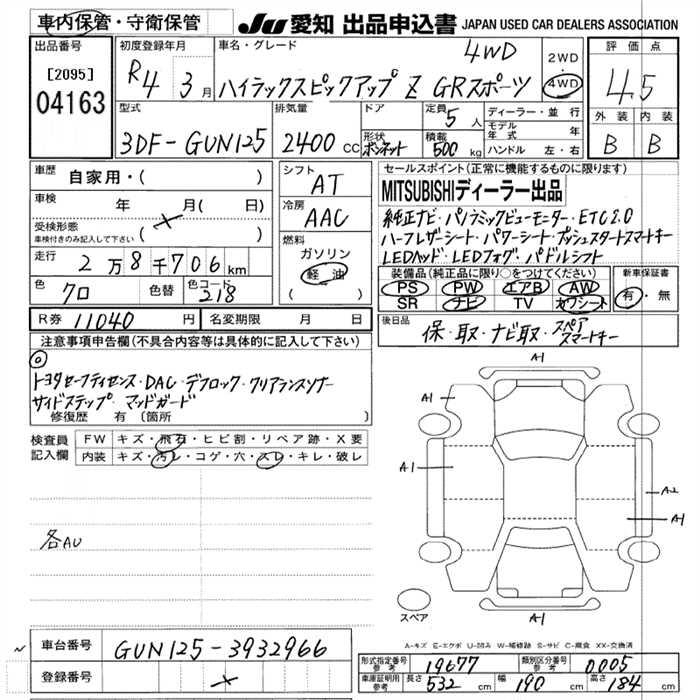 車内保管・守衛保管 JU 愛知 出品申込書 JAPAN USED CAR DEALERS ASSOCIATION
出品番号 初度登録年月 車名・グレード 4WD 2WD・4WD 評価点
[2095] R4 3月 ハイラックスピックアップ Z GRスポーツ 4.5
04163
型式 排気量 ドア 定員 5人 ディーラー・並行 外装 内装
3DF-GUN125 2400cc 形状 ボンネット 積載 500kg モデル年式 年 B B
ハンドル 左・右
車歴 自家用・( ) シフト AT セールスポイント(正常に機能するものに限ります)
車検 年 月( 日) 冷房 AAC MITSUBISHIディーラー出品
受検形態 ( × )
車検付きのみ記入して下さい
純正ナビ・パノラミックビューモーター・ETC2.0
ハーフレザーシート・パワーシート・プッシュスタートスマートキー
LEDヘッド・LEDフォグ・パドルシフト
走行 2万8千706km 燃料 ガソリン 軽油 ( )
装備品(純正品に限り○をつけてください) 新車保証書
PS PW エアB AW 有・無
SR ナビ TV カワシート
色 クロ 色替 色コード 218
R券 11040円 名変期限 月 日
後日品 保・取・ナビ取・スペアスマートキー
注意事項申告欄(不具合内容等は具体的に記入して下さい)
◎
トヨタセーフティセンス・DAC・デフロック・クリアランスソナー
サイドステップ・マッドガード
修復歴 有 〔箇所
検査員記入欄 FW キズ・飛石・ヒビ割・リペア跡・X要
内装 キズ・汚レ・コゲ・穴・スレ・キレ・破レ
各AU
A-1
A-1
A-1
A-2
A-1
A-1
スペア
A-キズ E-エクボ U-凹み W-補修跡 S-サビ C-腐食 XX-交換済
車台番号 GUN125-3932966
登録番号 ×
形式指定番号 参考 19677 類別区分番号 参考 0005
車庫証明用 参考 長さ 532cm 幅 190cm 高さ 184cm